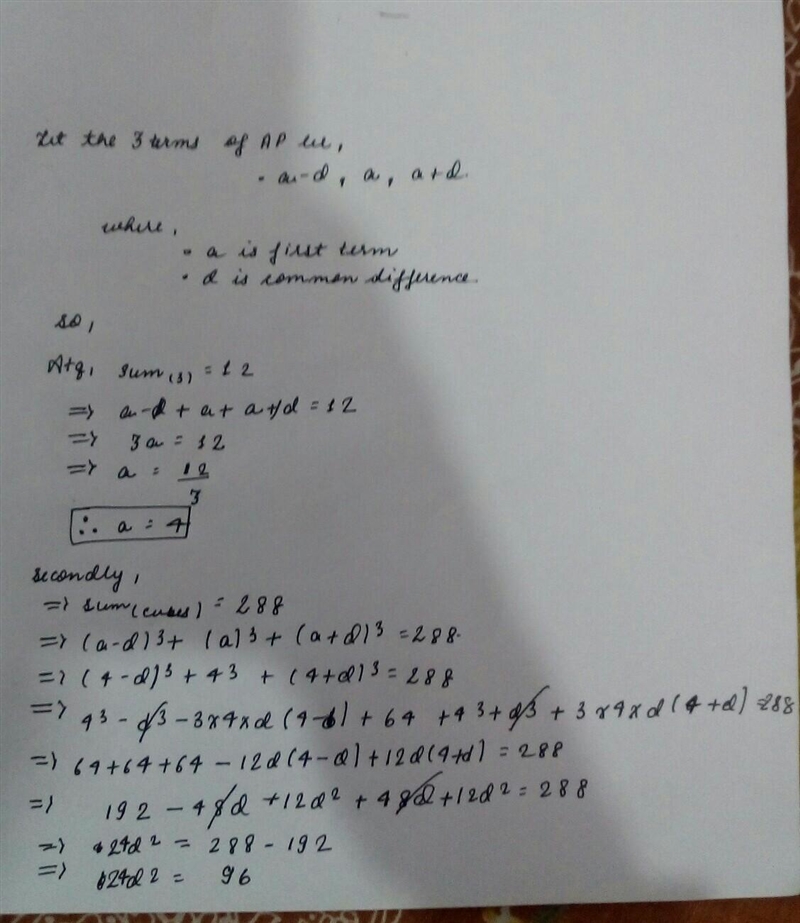 Let the 3 terms of AP be,
• a-d, a, a+d.
where,
• a is first term
• d is common difference.
so,
Atq, sum(3) = 12
=> a-d + a + a+d = 12
=> 3a = 12
=> a = 12/3
∴ a = 4
secondly,
=> sum(cubes) = 288
=> (a-d)3 + (a)3 + (a+d)3 = 288.
=> (4-d)3 + 43 + (4+d)3 = 288
=> 43 - d3 - 3x4xd (4-d) + 64 + 43 + d3 + 3x4xd (4+d) = 288
=> 64+64+64 - 12d(4-d) + 12d(4+d) = 288
=> 192 - 48d + 12d2 + 48d + 12d2 = 288
=> 24d2 = 288 - 192
=> 24d2 = 96